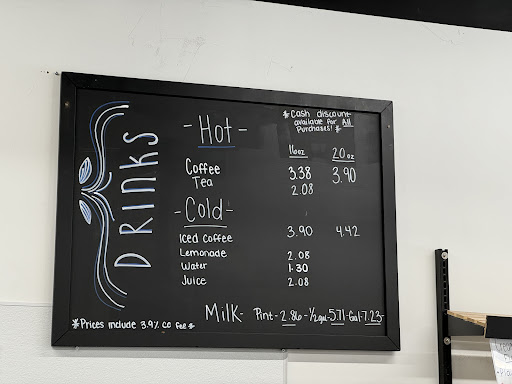 * Cash discount
available for All
Purchases! *
DRINKS
- Hot -
16oz 20oz
Coffee 3.38 3.90
Tea 2.08
- Cold -
Iced Coffee 3.90 4.42
Lemonade 2.08
Water 1.30
Juice 2.08
Milk- Pint-2.86-½gal-5.71-Gal-7.23-
*Prices include 3.9% CC fee*